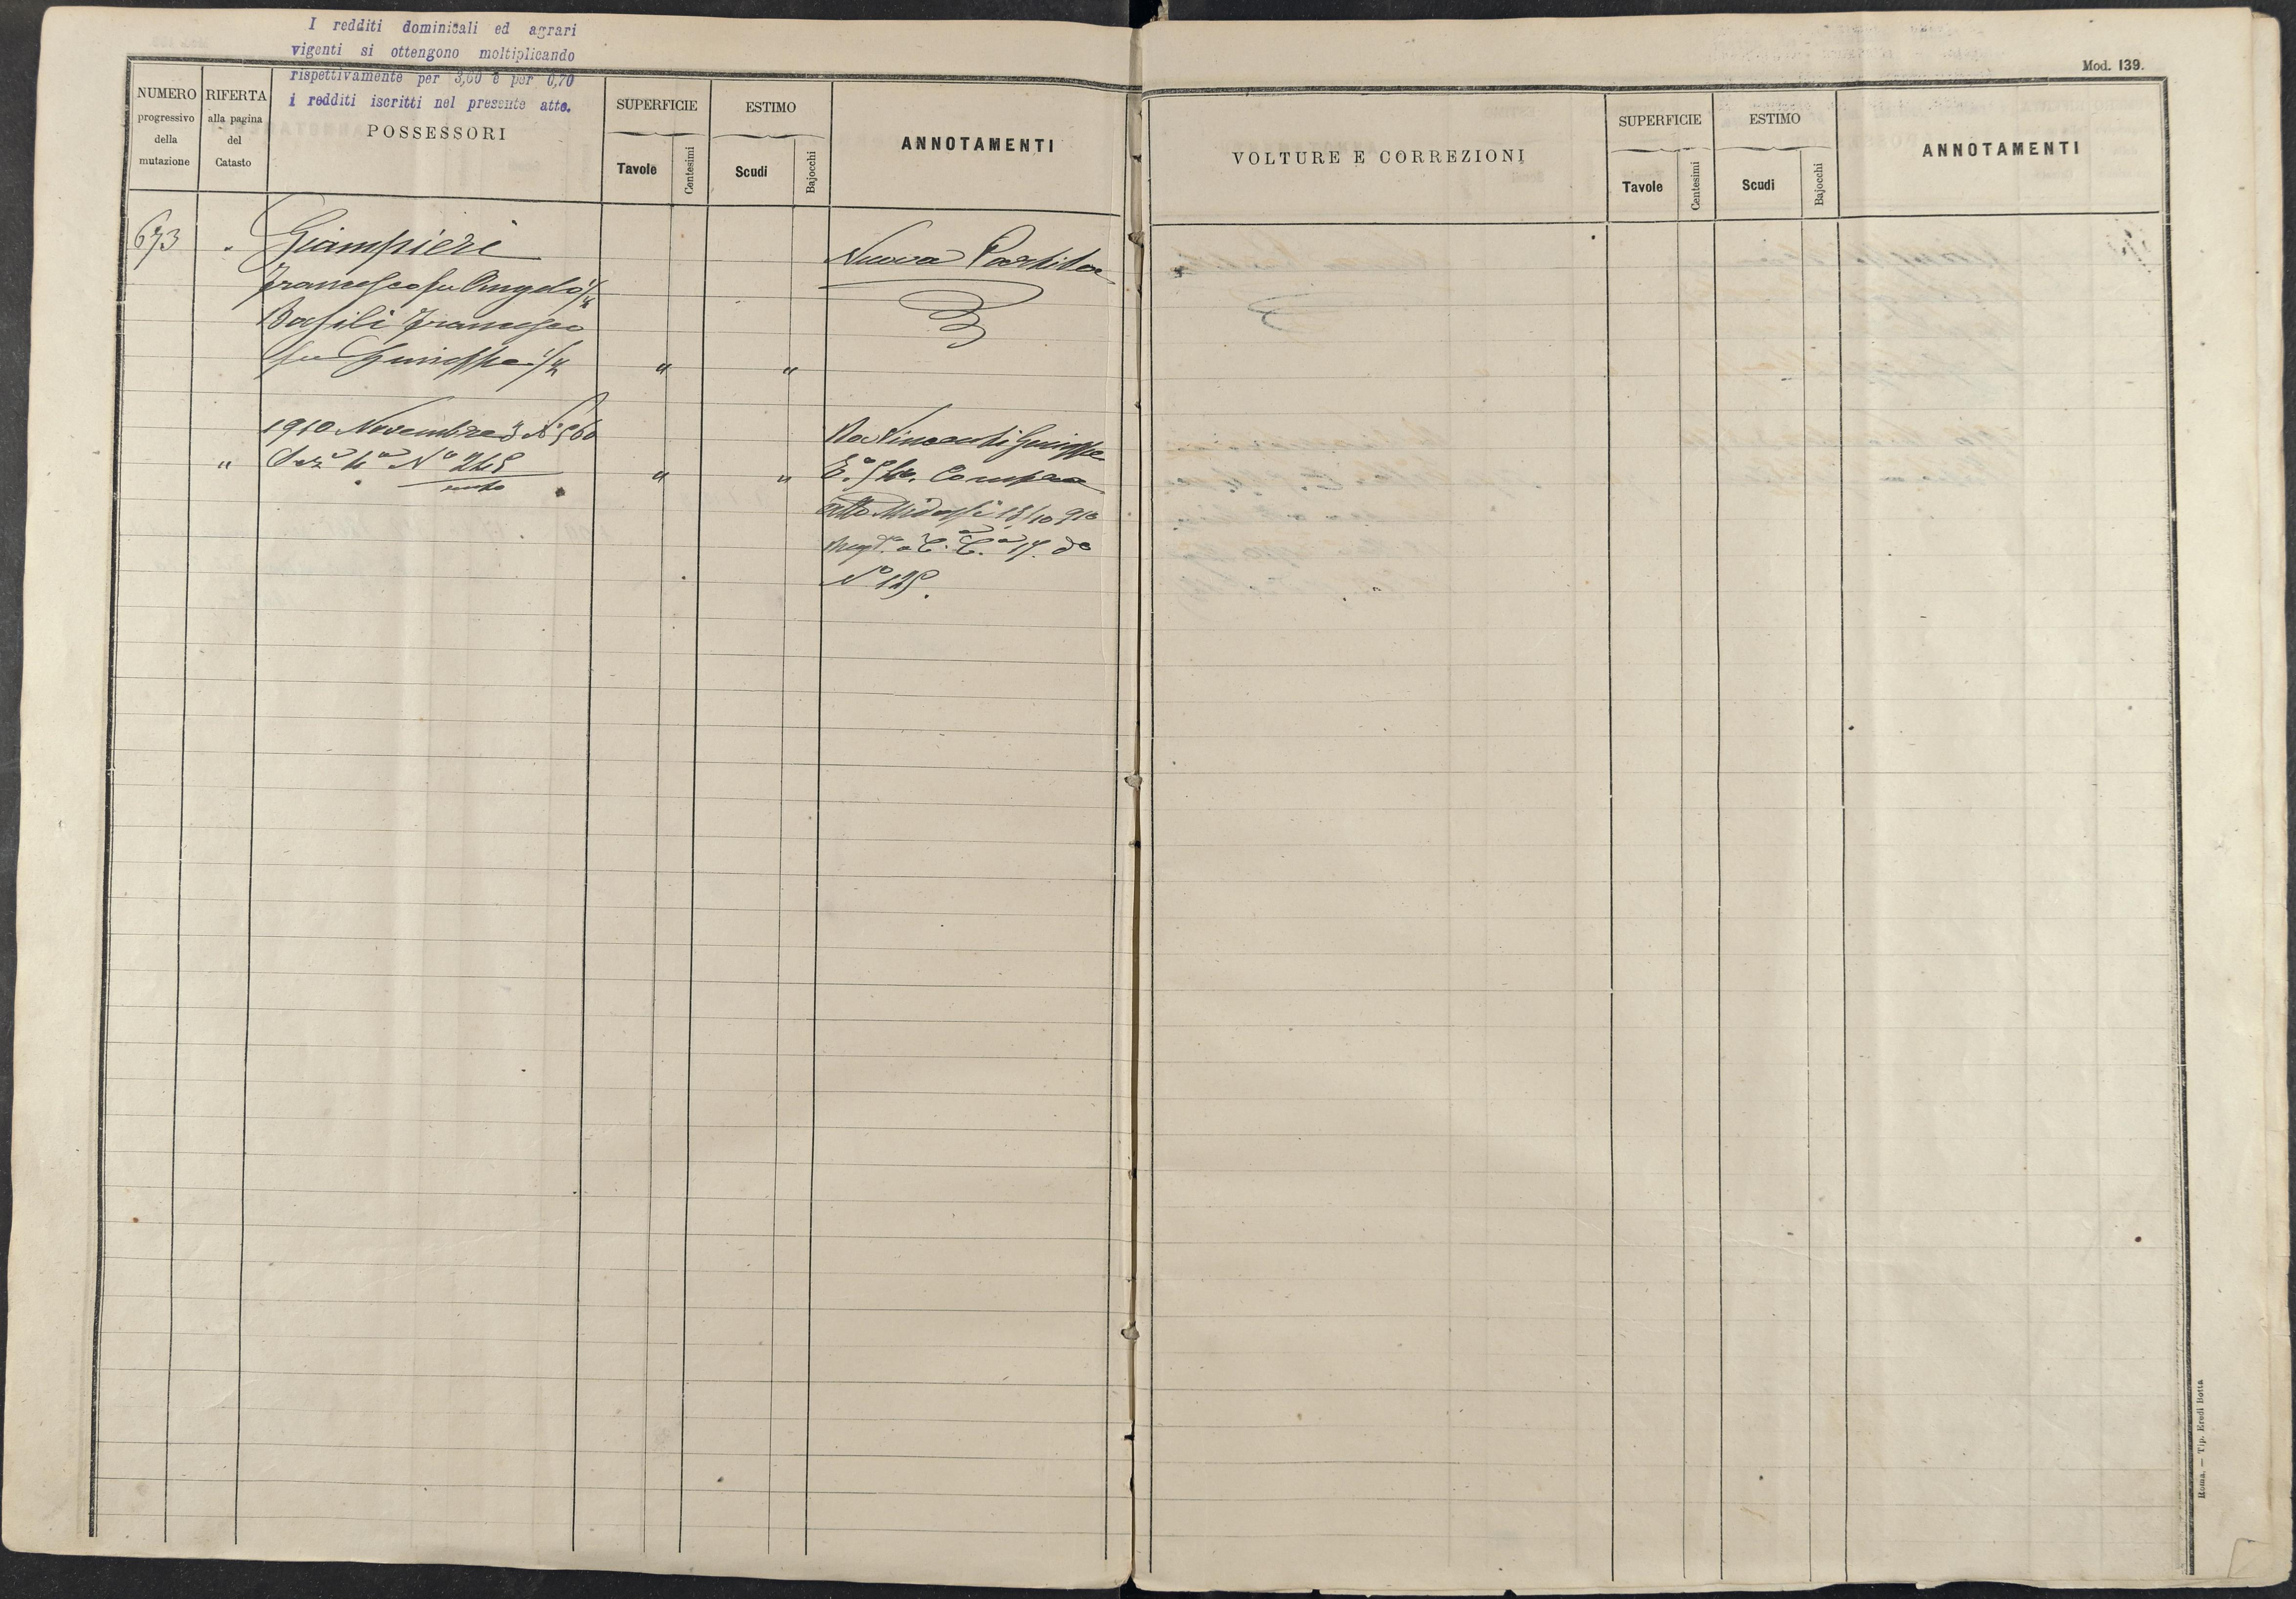 I redditi dominicali ed agrari
vigenti si ottengono moltiplicando
rispettivamente per 3,60 e per 0,70
i redditi iscritti nel presente atto.
NUMERO
progressivo
della
mutazione
RIFERTA
alla pagina
del
Catasto
POSSESSORI
SUPERFICIE
Tavole
Centesimi
ESTIMO
Scudi
Bajocchi
ANNOTAMENTI
673
Giampieri
Francesco fu Angelo
Basili Francesco
fu Giuseppe
" "
Nuova Partita
1910 Novembre 3 N° 560
" Sez. 4a N° 245
" "
Da Vincenti Giuseppe
Compra
atto 13/10 910
N° 125.
Mod. 139.
VOLTURE E CORREZIONI
SUPERFICIE
Tavole
Centesimi
ESTIMO
Scudi
Bajocchi
ANNOTAMENTI
Roma. — Tip. Eredi Botta